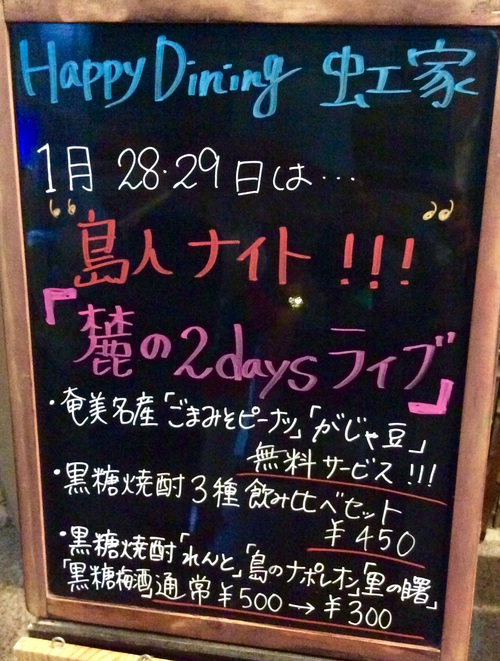 Happy Dining 虹家
1月 28・29日は…
"島人ナイト!!!"
『麓の2daysライブ』
・奄美名産「ごまみそピーナッツ」「がじゃ豆」
無料サービス!!!
・黒糖焼酎3種飲み比べセット
¥450
・黒糖焼酎「れんと」「島のナポレオン」「里の曙」
「黒糖梅酒」通常¥500→¥300